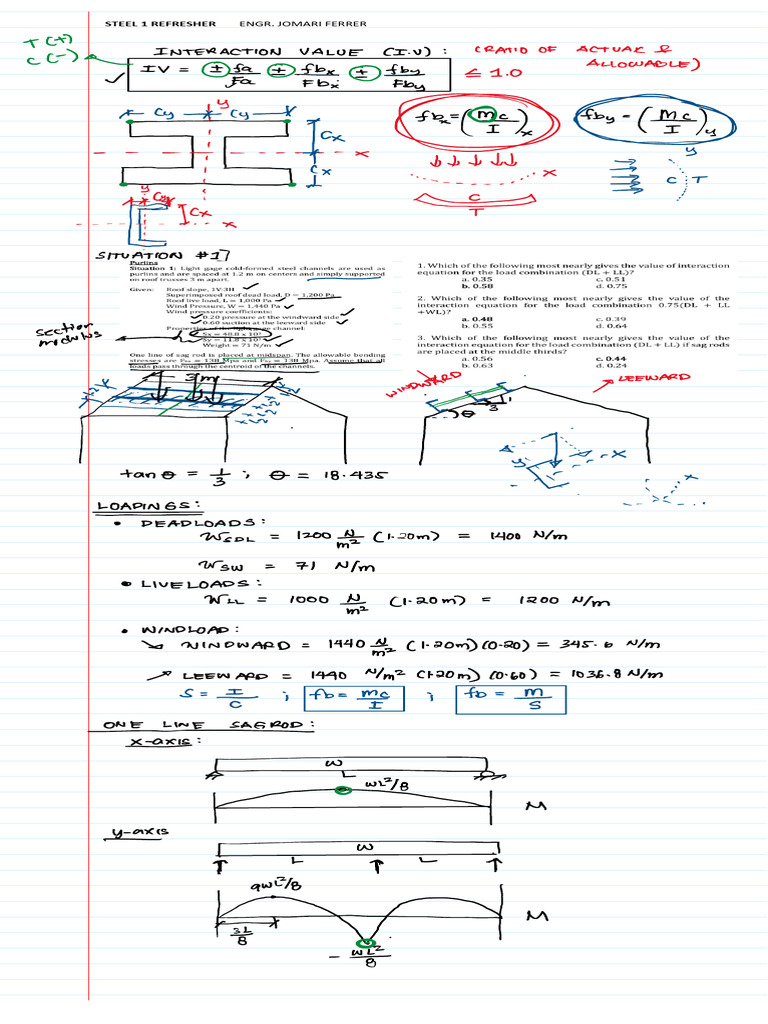 STEEL 1 REFRESHER ENGR. JOMARI FERRER
T (+)
C (-)
INTERACTION VALUE (I.V):
(RATIO OF ACTUAL &
ALLOWABLE)
IV = ± fa/Fa ± fbx/Fbx ± fby/Fby ≤ 1.0
fbx = (Mc/I)x
fby = (Mc/I)y
Cy Cy
y
Cx
x
Cx
x
C
T
y
C T
y
Cy
Cx
x
SITUATION #1
Purlins
Situation 1: Light gage cold-formed steel channels are used as
purlins and are spaced at 1.2 m on centers and simply supported
on roof trusses 3 m apart.
Given: Roof slope, 1V:3H
Superimposed roof dead load, D = 1,200 Pa
Roof live load, L = 1,000 Pa
Wind Pressure, W = 1,440 Pa
Wind pressure coefficients:
0.20 pressure at the windward side
0.60 suction at the leeward side
Sx = 48.8 x 10³
Sy = 11.8 x 10³
Weight = 71 N/m
section
modulus
One line of sag rod is placed at midspan. The allowable bending
stresses are Fbx = 138 Mpa and Fby = 138 Mpa. Assume that all
loads pass through the centroid of the channels.
1. Which of the following most nearly gives the value of interaction
equation for the load combination (DL + LL)?
a. 0.35 c. 0.51
b. 0.58 d. 0.75
2. Which of the following most nearly gives the value of the
interaction equation for the load combination 0.75(DL + LL
+WL)?
a. 0.48 c. 0.39
b. 0.55 d. 0.64
3. Which of the following most nearly gives the value of the
interaction equation for the load combination (DL + LL) if sag rods
are placed at the middle thirds?
a. 0.56 c. 0.44
b. 0.63 d. 0.24
3m
1.2
1.2
1.2
WINDWARD
LEEWARD
1
3
θ
y
x
x
tan θ = 1/3 ; θ = 18.435
LOADINGS:
• DEADLOADS:
WSDL = 1200 N/m² (1.20m) = 1400 N/m
WSW = 71 N/m
• LIVELOADS:
WLL = 1000 N/m² (1.20m) = 1200 N/m
• WINDLOAD:
WINDWARD = 1440 N/m² (1.20m)(0.20) = 345.6 N/m
LEEWARD = 1440 N/m² (1.20m) (0.60) = 1036.8 N/m
S = I/C ; fb = mc/I ; fb = M/S
ONE LINE SAGROD:
x-axis:
W
L
WL²/8
M
y-axis
W
L L
9WL²/8
M
3L/8
- WL²/8